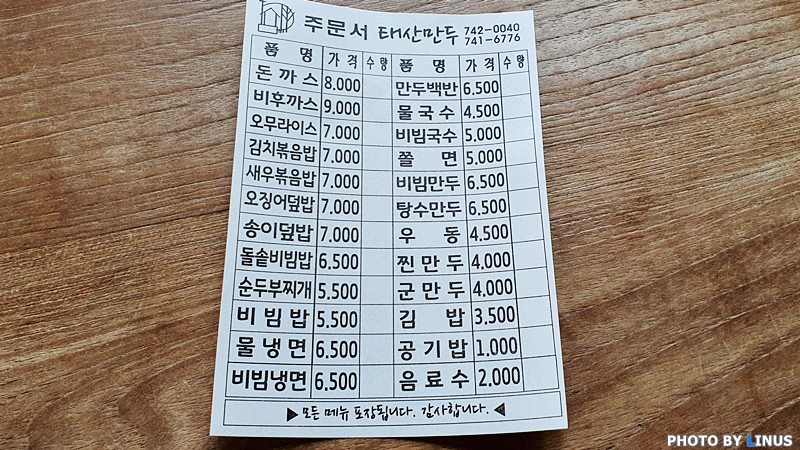 주문서 태산만두 742-0040
741-6776
품 명 가격 수량 품 명 가격 수량
돈까스 8.000 만두백반 6.500
비후까스 9.000 물국수 4.500
오무라이스 7.000 비빔국수 5.000
김치볶음밥 7.000 쫄 면 5.000
새우볶음밥 7.000 비빔만두 6.500
오징어덮밥 7.000 탕수만두 6.500
송이덮밥 7.000 우 동 4.500
돌솥비빔밥 6.500 찐만두 4.000
순두부찌개 5.500 군만두 4.000
비빔밥 5.500 김 밥 3.500
물냉면 6.500 공기밥 1.000
비빔냉면 6.500 음료수 2.000
▶모든 메뉴 포장됩니다. 감사합니다.◀
PHOTO BY LINUS